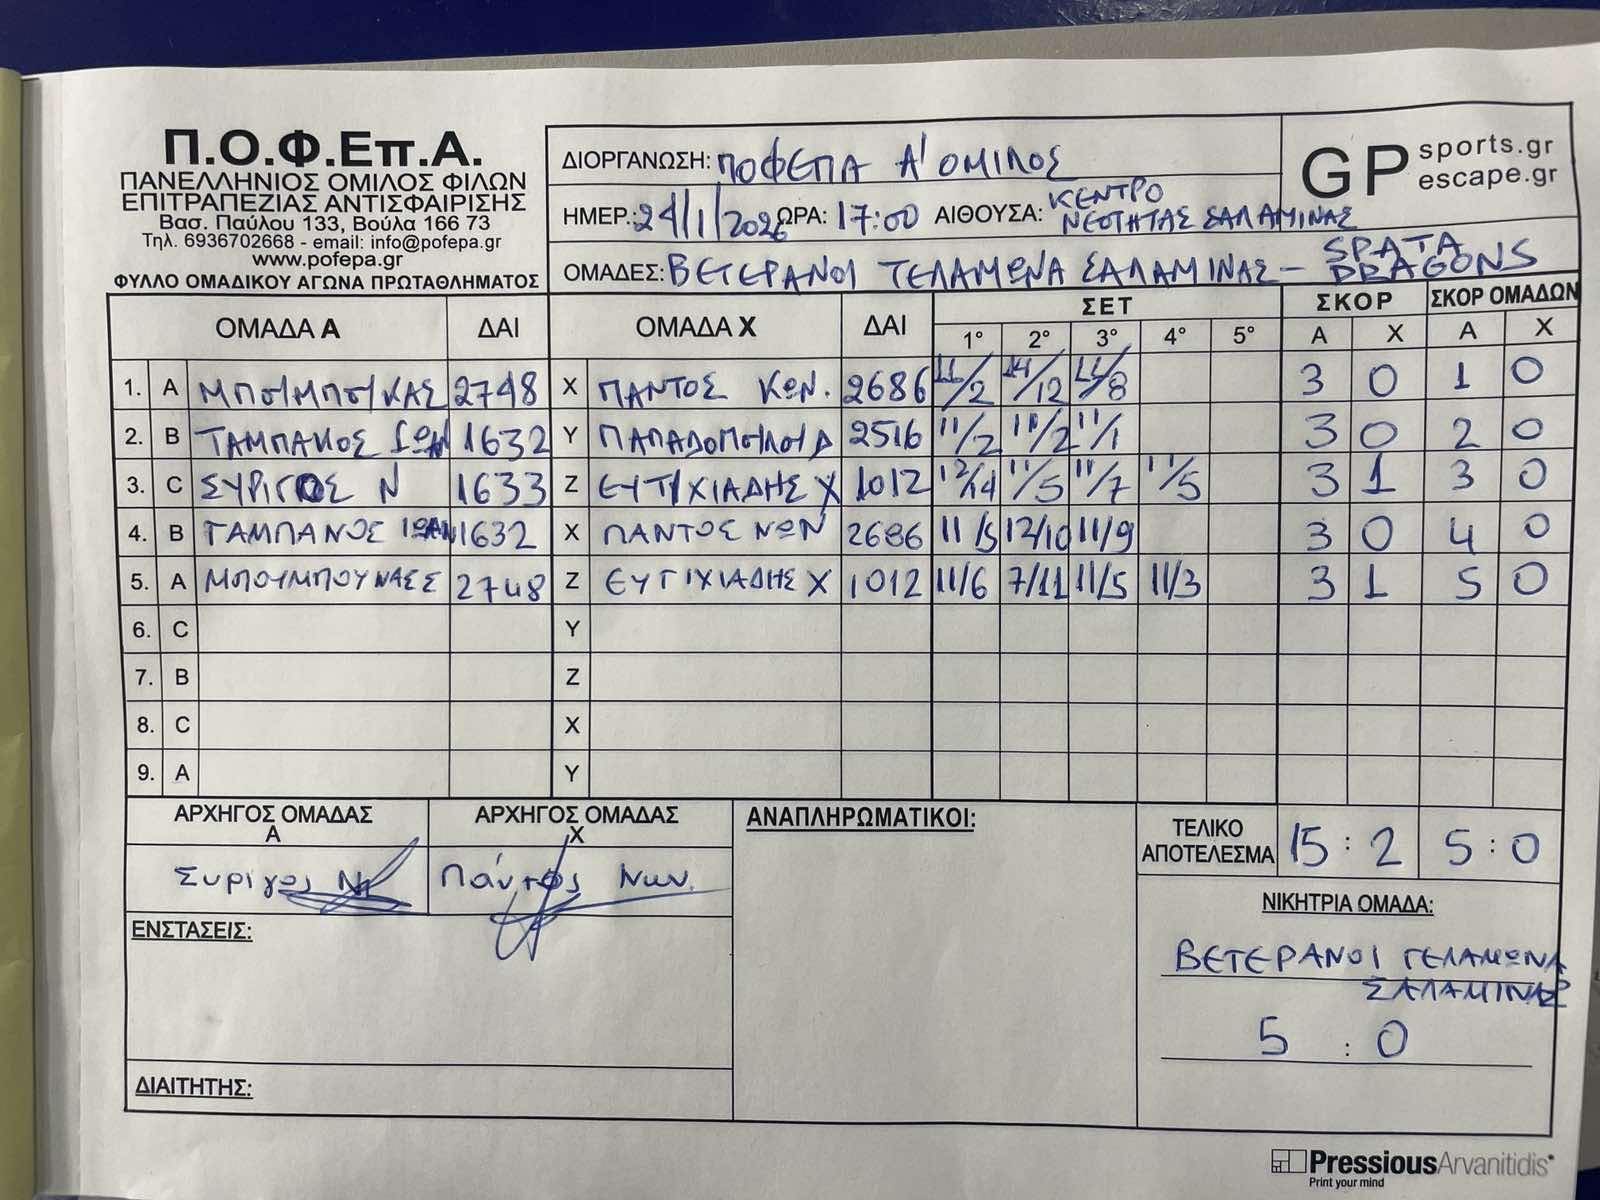 Π.Ο.Φ.Επ.Α.
ΠΑΝΕΛΛΗΝΙΟΣ ΟΜΙΛΟΣ ΦΙΛΩΝ
ΕΠΙΤΡΑΠΕΖΙΑΣ ΑΝΤΙΣΦΑΙΡΙΣΗΣ
Βασ. Παύλου 133, Βούλα 166 73
Τηλ. 6936702668 - email: info@pofepa.gr
www.pofepa.gr
ΦΥΛΛΟ ΟΜΑΔΙΚΟΥ ΑΓΩΝΑ ΠΡΩΤΑΘΛΗΜΑΤΟΣ
ΔΙΟΡΓΑΝΩΣΗ: ΠΟΦΕΠΑ Α' ΟΜΙΛΟΣ
ΗΜΕΡ.: 24/1/2026 ΩΡΑ: 17:00 ΑΙΘΟΥΣΑ: ΚΕΝΤΡΟ
ΝΕΟΤΗΤΑΣ ΣΑΛΑΜΙΝΑΣ
ΟΜΑΔΕΣ: ΒΕΤΕΡΑΝΟΙ ΤΕΛΑΜΩΝΑ ΣΑΛΑΜΙΝΑΣ - SPATA
DRAGONS
GP sports.gr
escape.gr
ΟΜΑΔΑ Α ΔΑΙ ΟΜΑΔΑ Χ ΔΑΙ ΣΕΤ ΣΚΟΡ ΣΚΟΡ ΟΜΑΔΩΝ
1° 2° 3° 4° 5° Α Χ Α Χ
1. A ΜΠΟΥΜΠΟΥΚΑΣ 2748 X ΠΑΝΤΟΣ ΚΩΝ. 2686 11/2 14/12 11/8 3 0 1 0
2. B ΤΑΜΠΑΚΟΣ ΙΩΑΝ 1632 Y ΠΑΠΑΔΟΠΟΥΛΟΥ Δ 2516 11/2 11/2 11/1 3 0 2 0
3. C ΣΥΡΙΓΟΣ Ν 1633 Z ΕΥΤΥΧΙΑΔΗΣ Χ 1012 12/14 11/5 11/7 11/5 3 1 3 0
4. B ΤΑΜΠΑΝΟΣ ΙΩΑΝ 1632 X ΠΑΝΤΟΣ ΝΩΝ 2686 11/5 12/10 11/9 3 0 4 0
5. A ΜΠΟΥΜΠΟΥΝΑΣ Σ 2748 Z ΕΥΤΙΧΙΑΔΗΣ Χ 1012 11/6 7/11 11/5 11/3 3 1 5 0
6. C Y
7. B Z
8. C X
9. A Y
ΑΡΧΗΓΟΣ ΟΜΑΔΑΣ
Α
Συρίγος Ν
ΑΡΧΗΓΟΣ ΟΜΑΔΑΣ
Χ
Πάντος Νων.
ΕΝΣΤΑΣΕΙΣ:
ΔΙΑΙΤΗΤΗΣ:
ΑΝΑΠΛΗΡΩΜΑΤΙΚΟΙ:
ΤΕΛΙΚΟ
ΑΠΟΤΕΛΕΣΜΑ 15 : 2 5 : 0
ΝΙΚΗΤΡΙΑ ΟΜΑΔΑ:
ΒΕΤΕΡΑΝΟΙ ΤΕΛΑΜΩΝΑ
ΣΑΛΑΜΙΝΑΣ
5 : 0
Pressious Arvanitidis
Print your mind